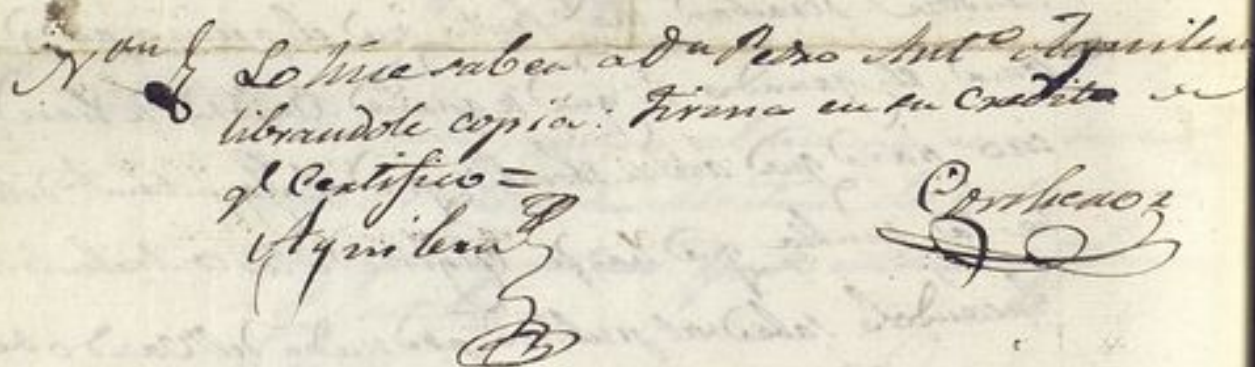 Non Lo hice saber a Dn Pedro Anto Aguilera
librandole copia: firma en su credito de
ql Certifico=
Aguilera